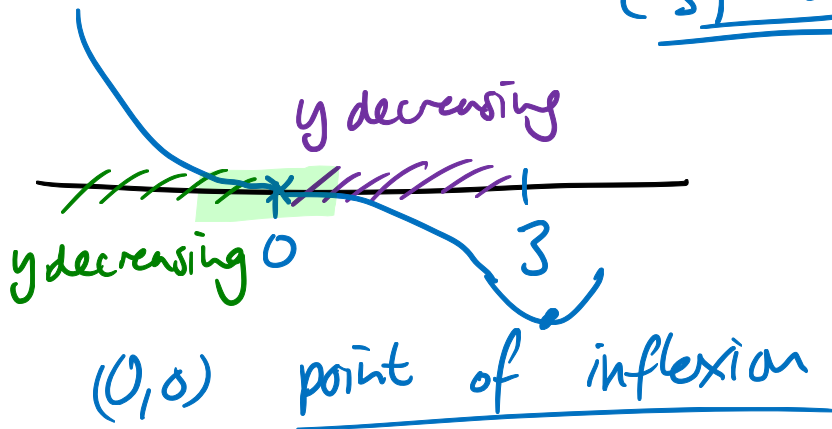 y decreasing
0
3
y decreasing
(0,0) point of inflexion